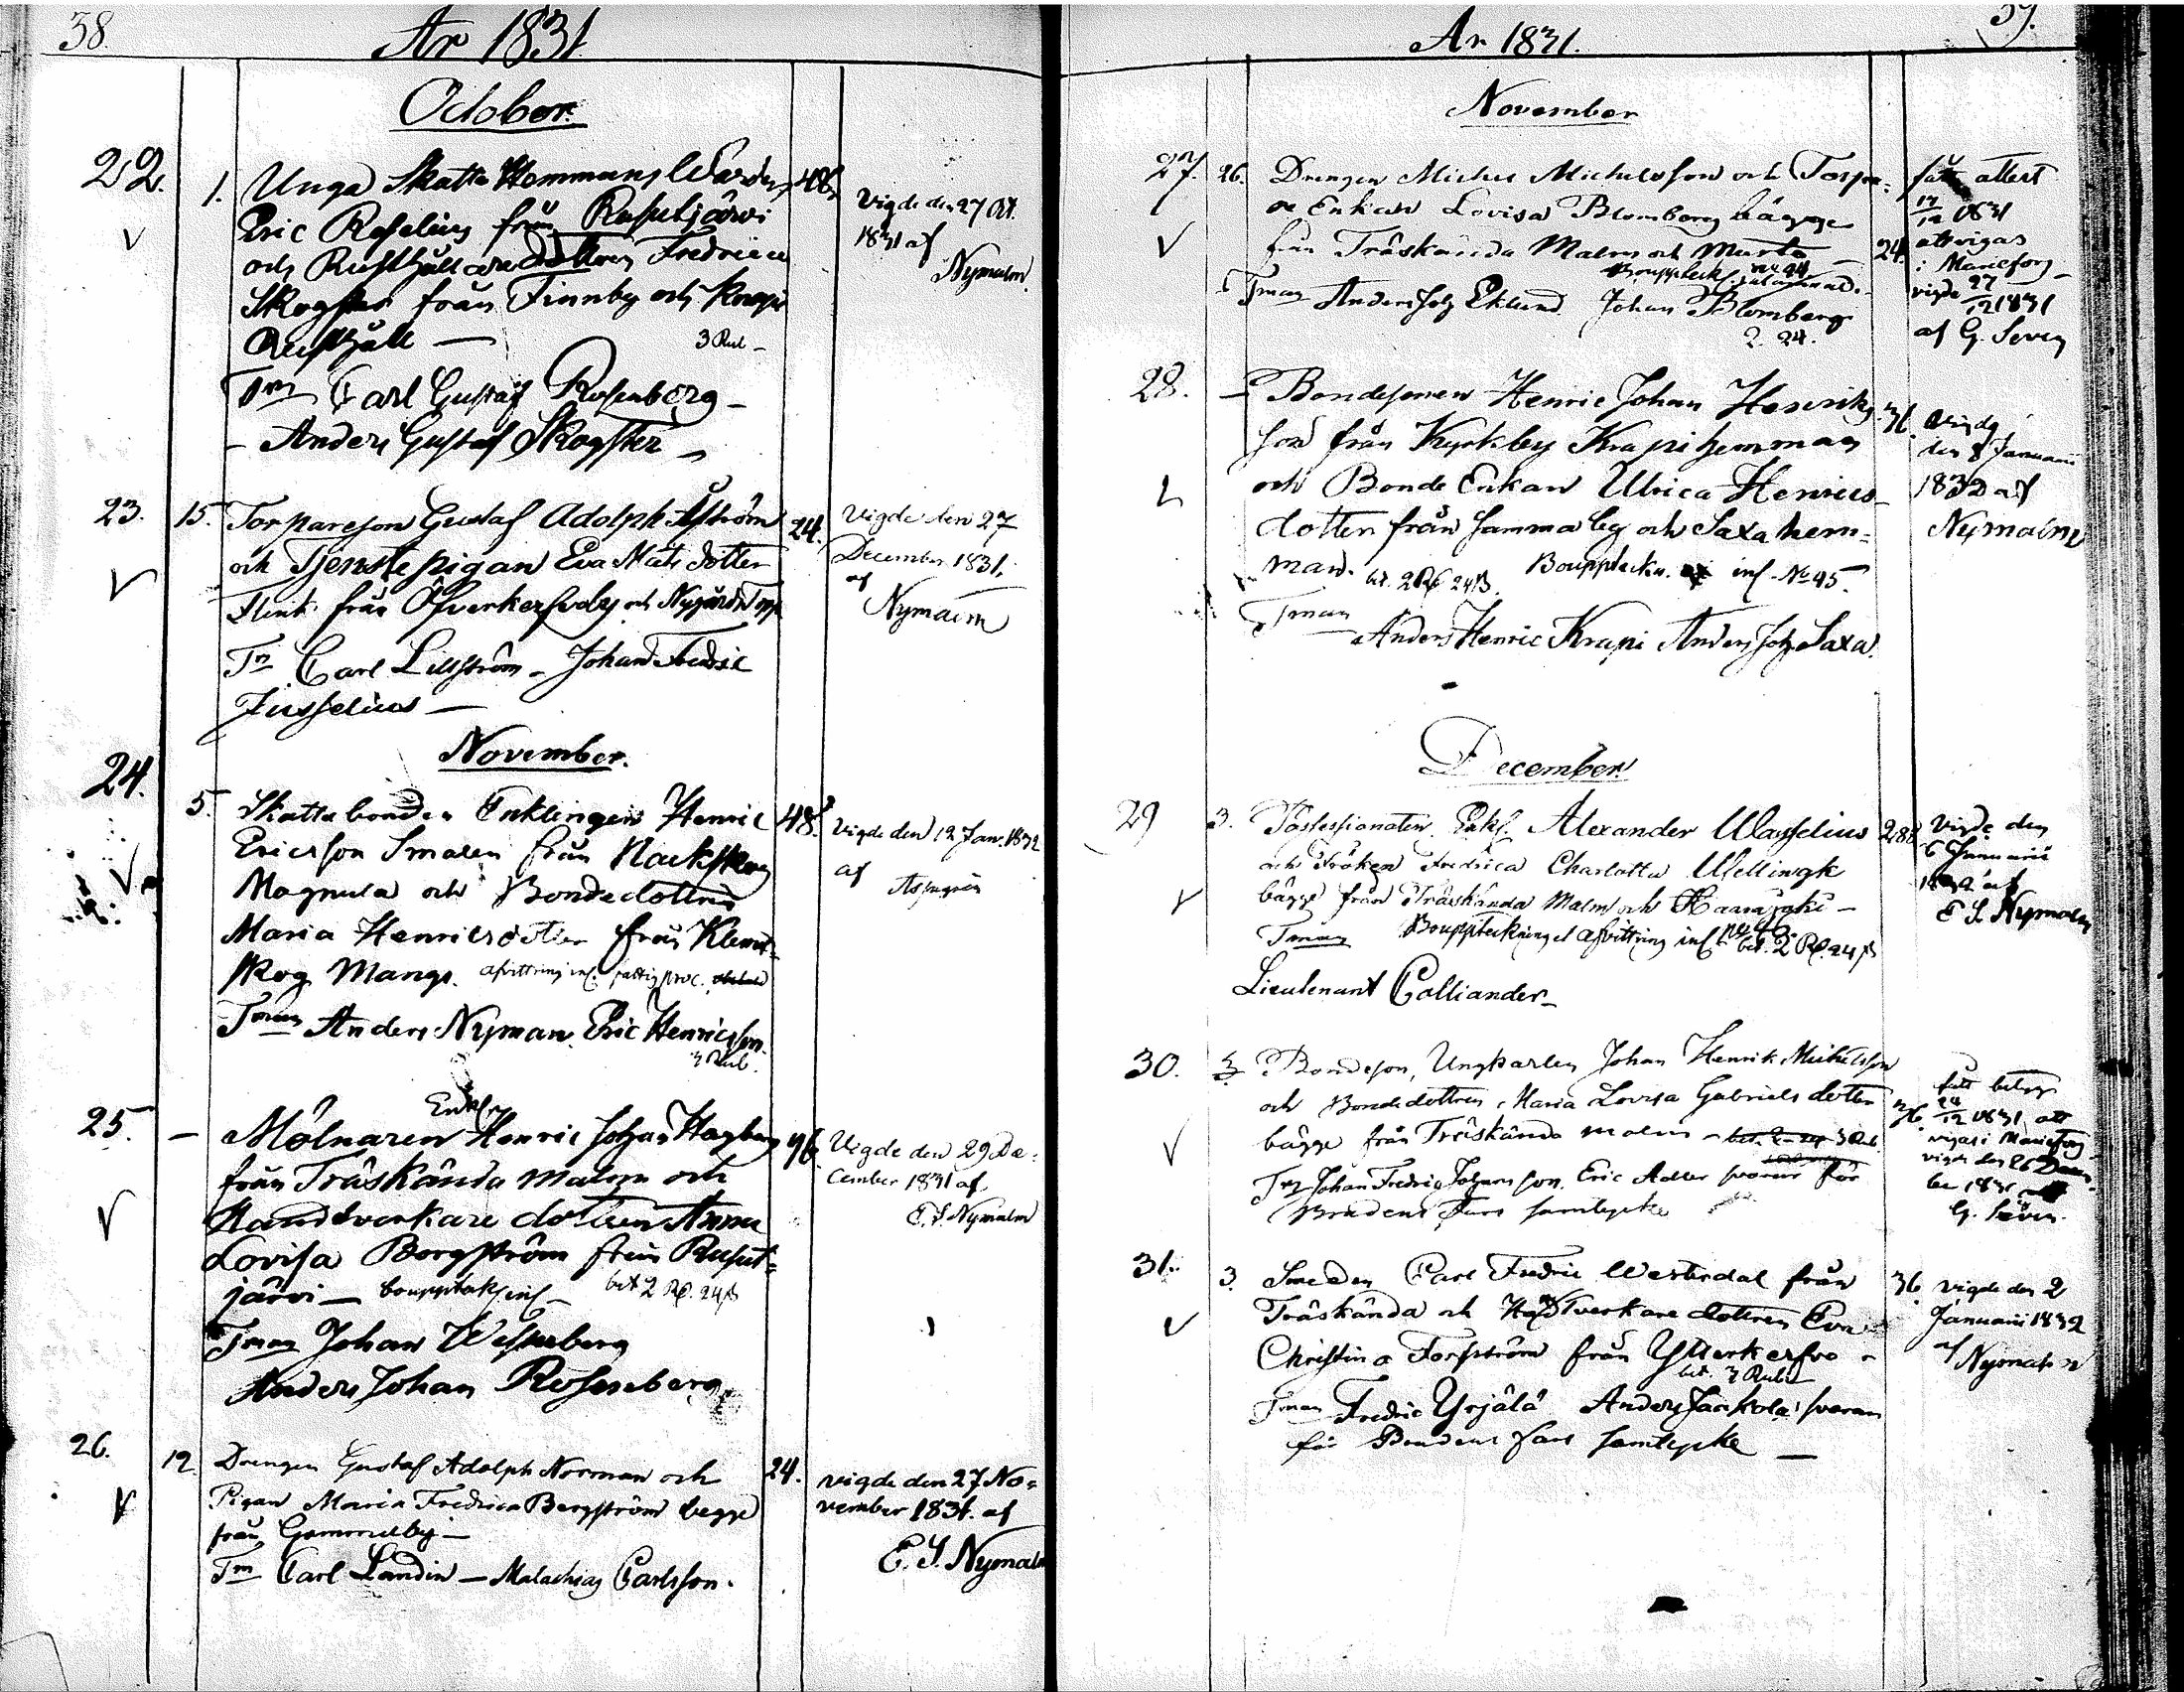 38.
År 1831.
October.
22.
1. Unga Skatte Hemmans Wärden 48.
Eric Roselius från Rusutjärvi
och Rusthållaredottren Fredrica
Skogster från Finnby och Krapi
Rusthåll —
3 Rub —
Tm Carl Gustaf Rosenberg —
— Anders Gustaf Skogster —
Vigde den 27 Oct.
1831 af
Nymalm
23.
15. Torpareson Gustaf Adolph Åström 24.
och Tjenstepigan Eva Mats dotter
Flink från Öfverkerfvoby och Nygårds Torp
Tm Carl Lillström — Johan Fredric
Fusselius —
Vigde den 27
December 1831.
af
Nymalm
November.
24.
5. Skattebonden Enklingen Henric 48.
Ericsson Smalen från Nackskog
Magnula och Bondedottren
Maria Henricsdotter från Klemet-
skog Mangs. afvittring inl. fattig proc.
Tman Anders Nyman. Eric Henricsson.
3 Rub.
Vigde den 12 Jan. 1832
af
25.
Enkl.
— Mölnaren Henric Johan Hagberg 96
från Träskända malm och
Handtverkare dottren Anna
Lovisa Bergström från Rusut-
järvi — boupptekn inl — bet 2 Rb. 24 β
Tman Johan Wesseberg
Anders Johan Roseneberg
Vigde den 29 De-
cember 1831 af
E. S. Nymalm
26.
12. Drengen Gustaf Adolph Norman och 24.
Pigan Maria Fredrica Bergström begge
från Gammelby —
Tm Carl Landin — Malachias Carlsson.
vigde den 27 No-
vember 1831. af
E. S. Nymalm
39.
År 1831.
November
27. 26. Drengen Michel Michelsson och Torpa-
re Enkan Lovisa Blomberg bägge
från Träskända Malm och Marta — 24.
Bouppteckn. No 44
Tman Anders Joh Eklund. Johan Blomberg
2. 24.
fått attest
17/12 1831
att vigas
i Mariefors —
vigde 27/12 1831
af G. Seven
28. — Bondesonen Henric Johan Henriks- 36.
son från Kyrkby Krapi hemman
och Bonde Enkan Ulrica Henrics-
dotter från samma by och Saxa hem-
man. bet. 2 Rb 24 β. Boupptekn. inl. No 45.
Tman
Anders Henric Krapi Anders Joh Saxa.
Vigde
den 8 Januari
1832 af
Nymalm
December.
29 3. Possessionaten Enkl. Alexander Wasselius 288
och Fröken Fredrica Charlotta Wellingk
bägge från Träskända Malm och Haarajoki —
Tman Bouppteckning el afvittring inl. bet. 2 Rb. 24 β
Lieutenant Calliander —
Vigde den
6 Januarii
1832 af
E. S. Nymalm
30. 3 Bondeson, Ungkarlen Johan Henrik Michelsson
och Bondedottren Maria Lovisa Gabriels dotter 36.
bägge från Träskända malm — bet. 2 — 24 3 Rub.
Tm Johan Fredric Johansson. Eric Adler svarar för
Brudens Fars samtycke
fått betyg
24/12 1831 att
vigas i Mariefors
vigde den 26 Decem-
ber 1831 af
G. Seven.
31. 3. Smeden Carl Fredric Westerdal från 36.
Träskända och Handtverkare dottren Eva
Christina Forsström från Ytterkerfvo —
bet. 3 Rub —
Tman Fredric Yrjälä Anders Jaakola svarar
för Brudens Fars samtycke —
vigde den 2
Januari 1832
af
Nymalm